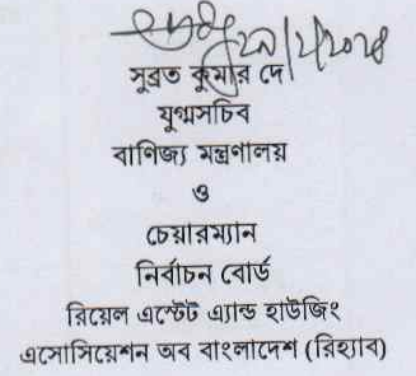 সুব্রত কুমার দে
যুগ্মসচিব
বাণিজ্য মন্ত্রণালয়
ও
চেয়ারম্যান
নির্বাচন বোর্ড
রিয়েল এস্টেট এ্যান্ড হাউজিং
এসোসিয়েশন অব বাংলাদেশ (রিহ্যাব)